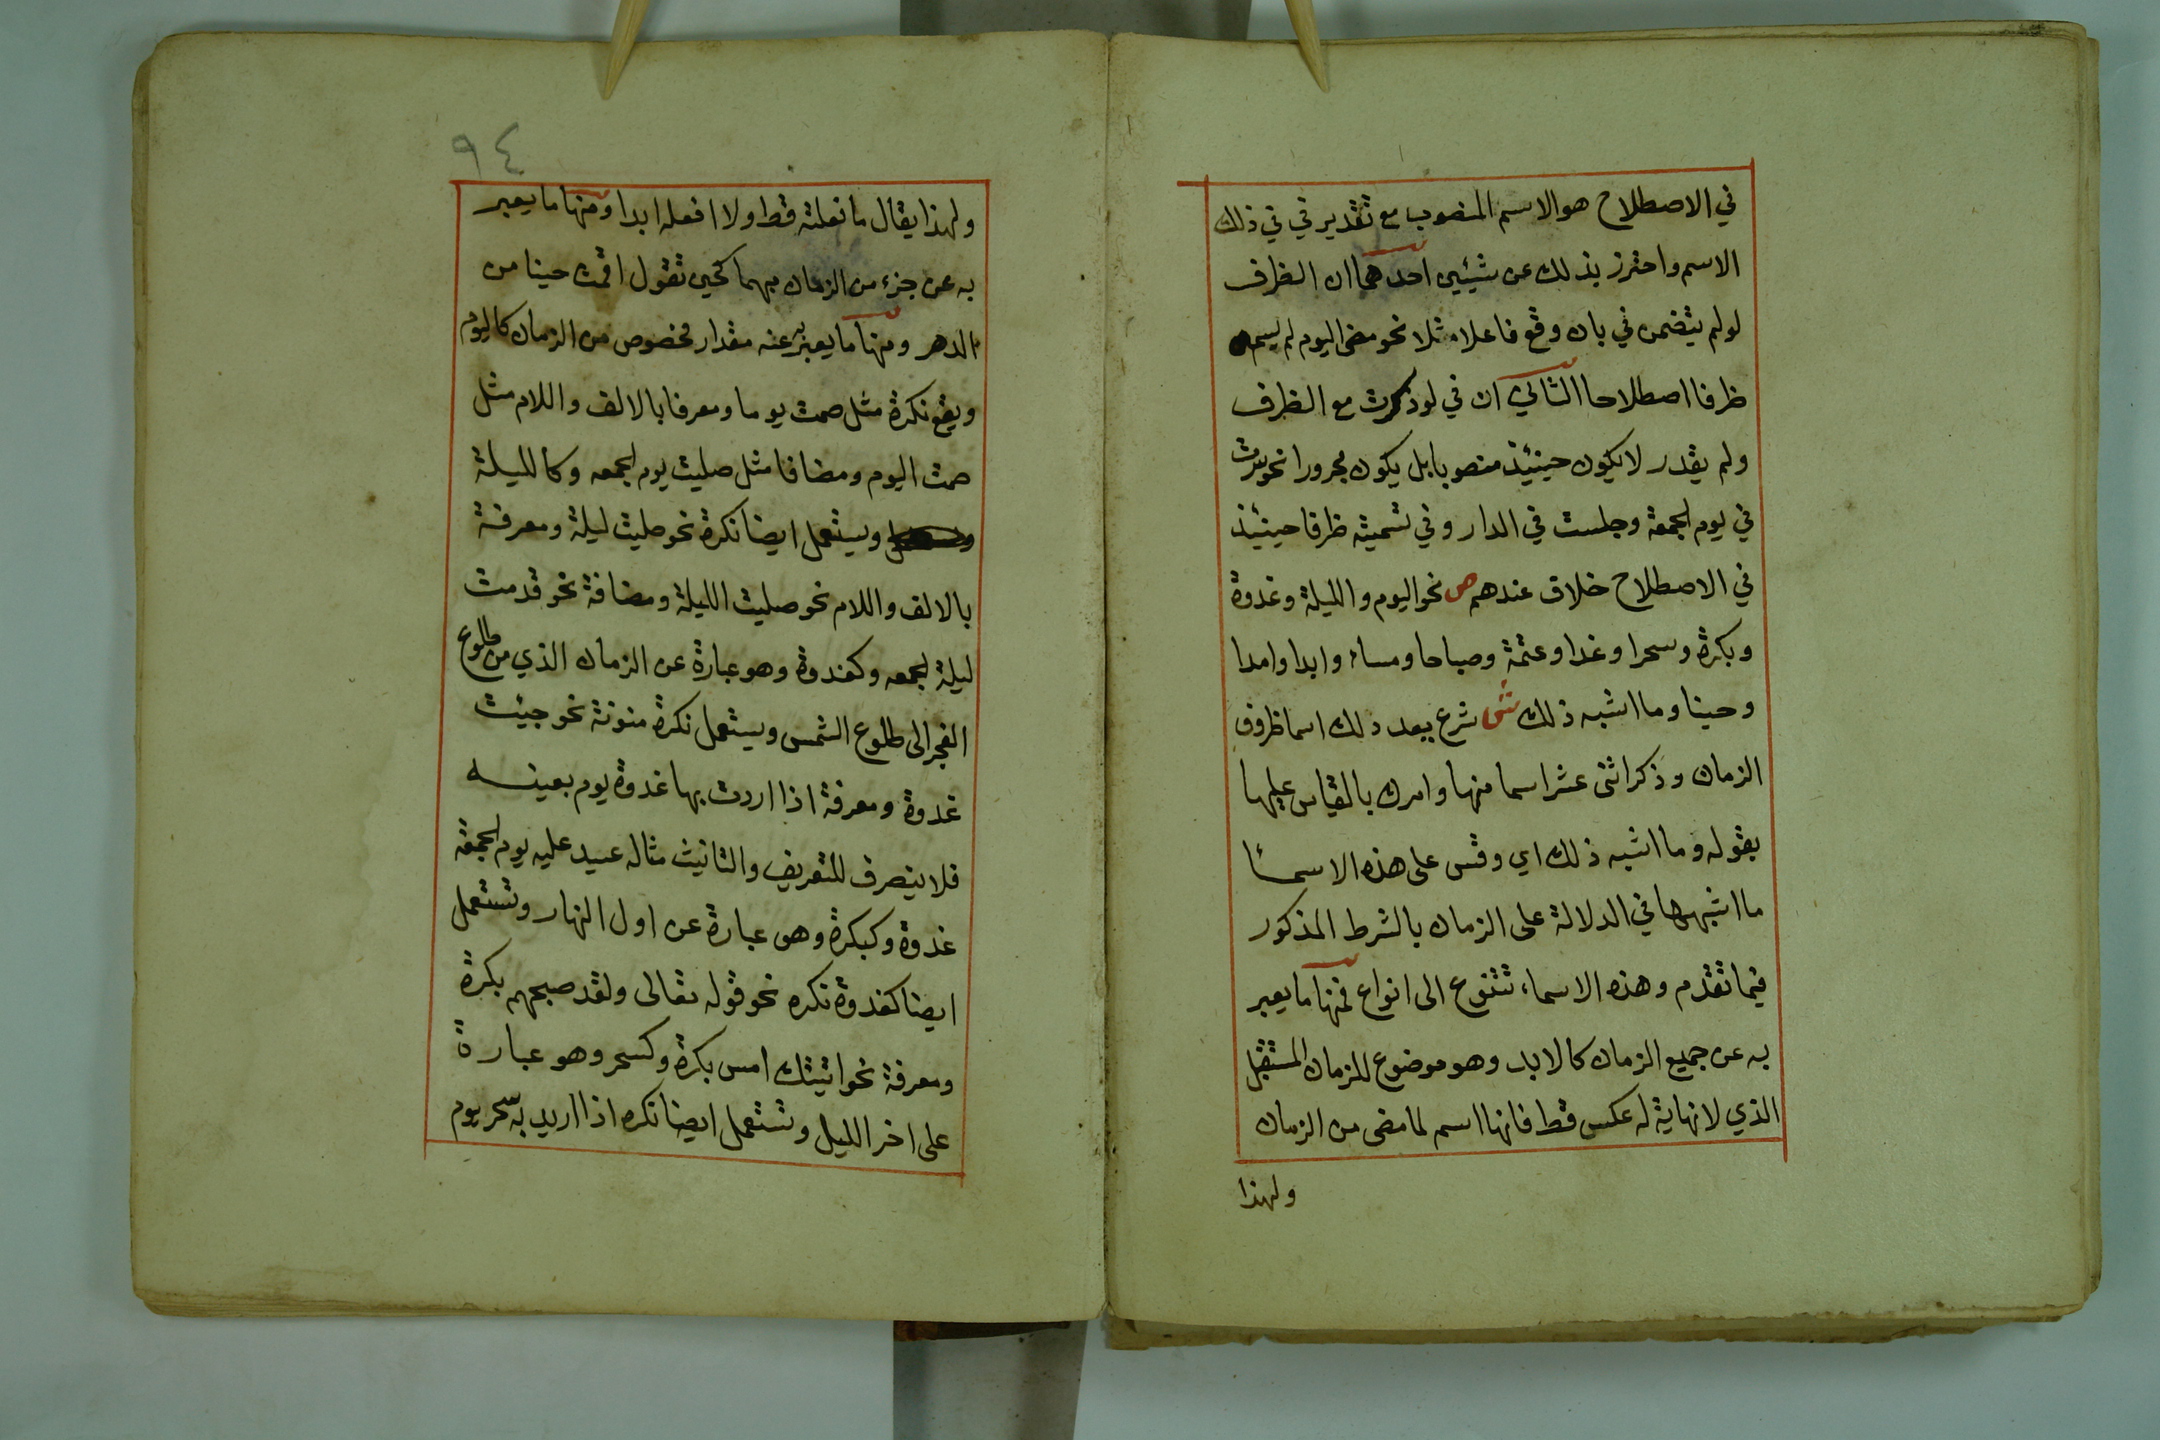 في الاصطلاح هو الاسم المنصوب مع تقدير في في ذلك
الاسم واحترز بذلك عن شيئين احدهما ان الظرف
لو لم يتضمن في بان وقع فاعلا مثلا نحو مضى اليوم لم يسم
ظرفا اصطلاحا الثاني ان في لو ذكرت مع الظرف
ولم يقدر لا يكون حينئذ منصوبا بل يكون مجرورا نحو سرت
في يوم الجمعة وجلست في الدار وفي تسميته ظرفا حينئذ
في الاصطلاح خلاف عندهم ص نحو اليوم والليلة وغدوة
وبكرة وسحرا وغدا وعتمة وصباحا ومساء وابدا وامدا
وحينا وما اشبه ذلك ش شرع بعد ذلك اسما ظروف
الزمان وذكر اثنى عشر اسما منها وامرك بالقياس عليها
بقوله وما اشبه ذلك اي وقس على هذه الاسما
ما اشبهها في الدلالة على الزمان بالشرط المذكور
فيما تقدم وهذه الاسماء تتنوع الى انواع فمنها ما يعبر
به عن جميع الزمان كالابد وهو موضوع للزمان المستقبل
الذي لا نهاية له عكس قط فانها اسم لما مضى من الزمان
ولهذا
٩٤
ولهذا يقال ما فعلته قط ولا افعله ابدا ومنها ما يعبر
به عن جزء من الزمان مبهما كحين تقول اقمت حينا من
الدهر ومنها ما يعبر به عنه مقدار مخصوص من الزمان كاليوم
ويقع نكرة مثل صمت يوما ومعرفا بالالف واللام مثل
صمت اليوم ومضافا مثل صليت يوم الجمعه وكالليلة
ويستعمل ايضا نكرة نحو صليت ليلة ومعرفة
بالالف واللام نحو صليت الليلة ومضافة نحو قدمت
ليلة الجمعه وكغدوة وهو عبارة عن الزمان الذي من طلوع
الفجر الى طلوع الشمس ويستعمل نكرة منونة نحو جيئت
غدوة ومعرفة اذا اردت بها غدوة يوم بعينه
فلا ينصرف للتعريف والتانيث مثاله عليه يوم الجمعة
غدوة وكبكرة وهى عبارة عن اول النهار وتستعمل
ايضا كغدوة نكره نحو قوله تعالى ولقد صبحهم بكرة
ومعرفة نحو اتيتك امس بكرة وكسحر وهو عبارة
على اخر الليل وتستعمل ايضا نكره اذا اريد به سحر يوم